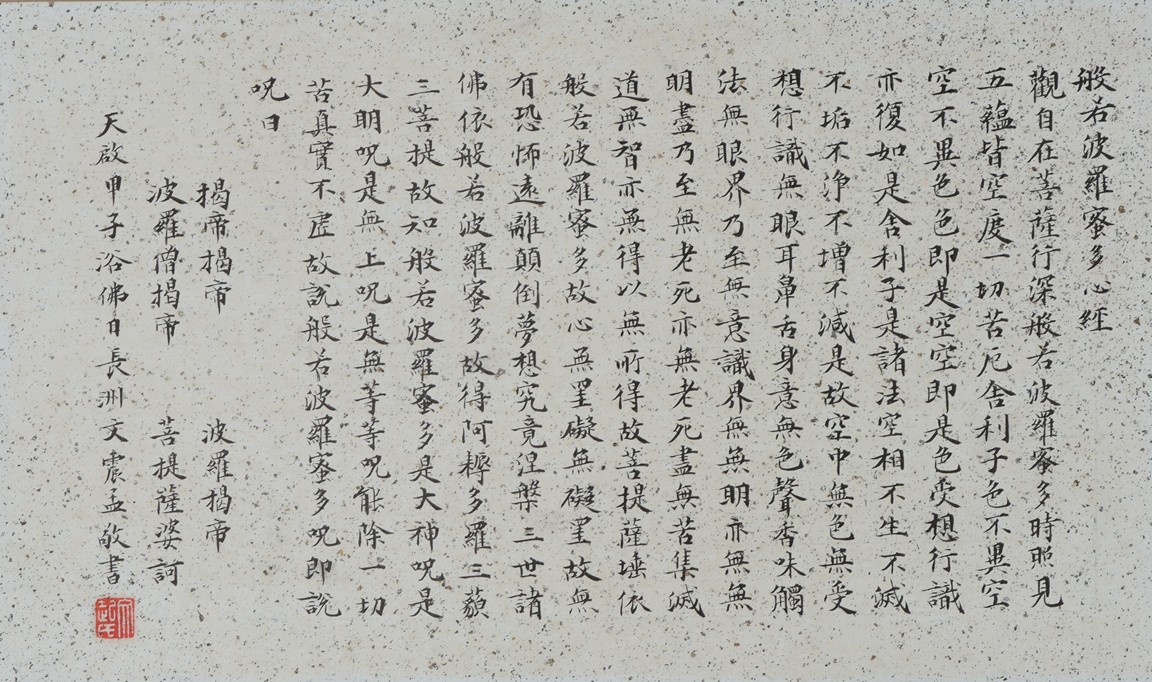 般若波羅蜜多心經
觀自在菩薩行深般若波羅蜜多時照見
五蘊皆空度一切苦厄舍利子色不異空
空不異色色即是空空即是色受想行識
亦復如是舍利子是諸法空相不生不滅
不垢不淨不增不減是故空中無色無受
想行識無眼耳鼻舌身意無色聲香味觸
法無眼界乃至無意識界無無明亦無無
明盡乃至無老死亦無老死盡無苦集滅
道無智亦無得以無所得故菩提薩埵依
般若波羅蜜多故心無罣礙無礙罣故無
有恐怖遠離顛倒夢想究竟涅槃三世諸
佛依般若波羅蜜多故得阿耨多羅三藐
三菩提故知般若波羅蜜多是大神呪是
大明呪是無上呪是無等等呪能除一切
苦真實不虛故說般若波羅蜜多呪即說
呪曰
揭帝揭帝 波羅揭帝
波羅僧揭帝 菩提薩婆訶
天啟甲子浴佛日長洲文震孟敬書
文起氏